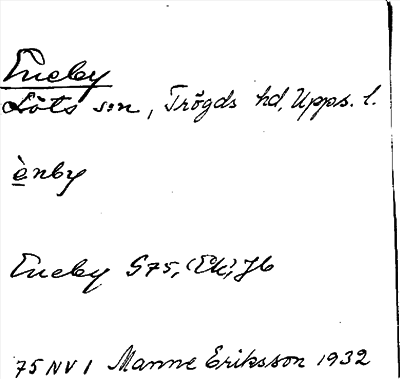 Eneby
Löts sn, Trögds hd, Upps. l.
ènby
Eneby G75, (Ek), Jb
75 NV 1 Manne Eriksson 1932